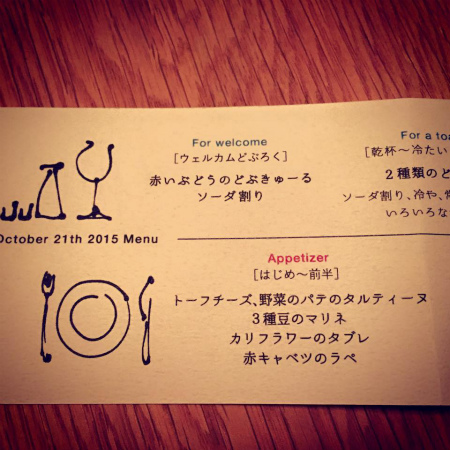 For welcome
[ウェルカムどぶろく]
赤いぶどうのどぶきゅーる
ソーダ割り
For a toa
[乾杯〜冷たい
2種類のど
ソーダ割り、冷や、常
いろいろな
October 21th 2015 Menu
Appetizer
[はじめ〜前半]
トーフチーズ、野菜のパテのタルティーヌ
3種豆のマリネ
カリフラワーのタブレ
赤キャベツのラペ